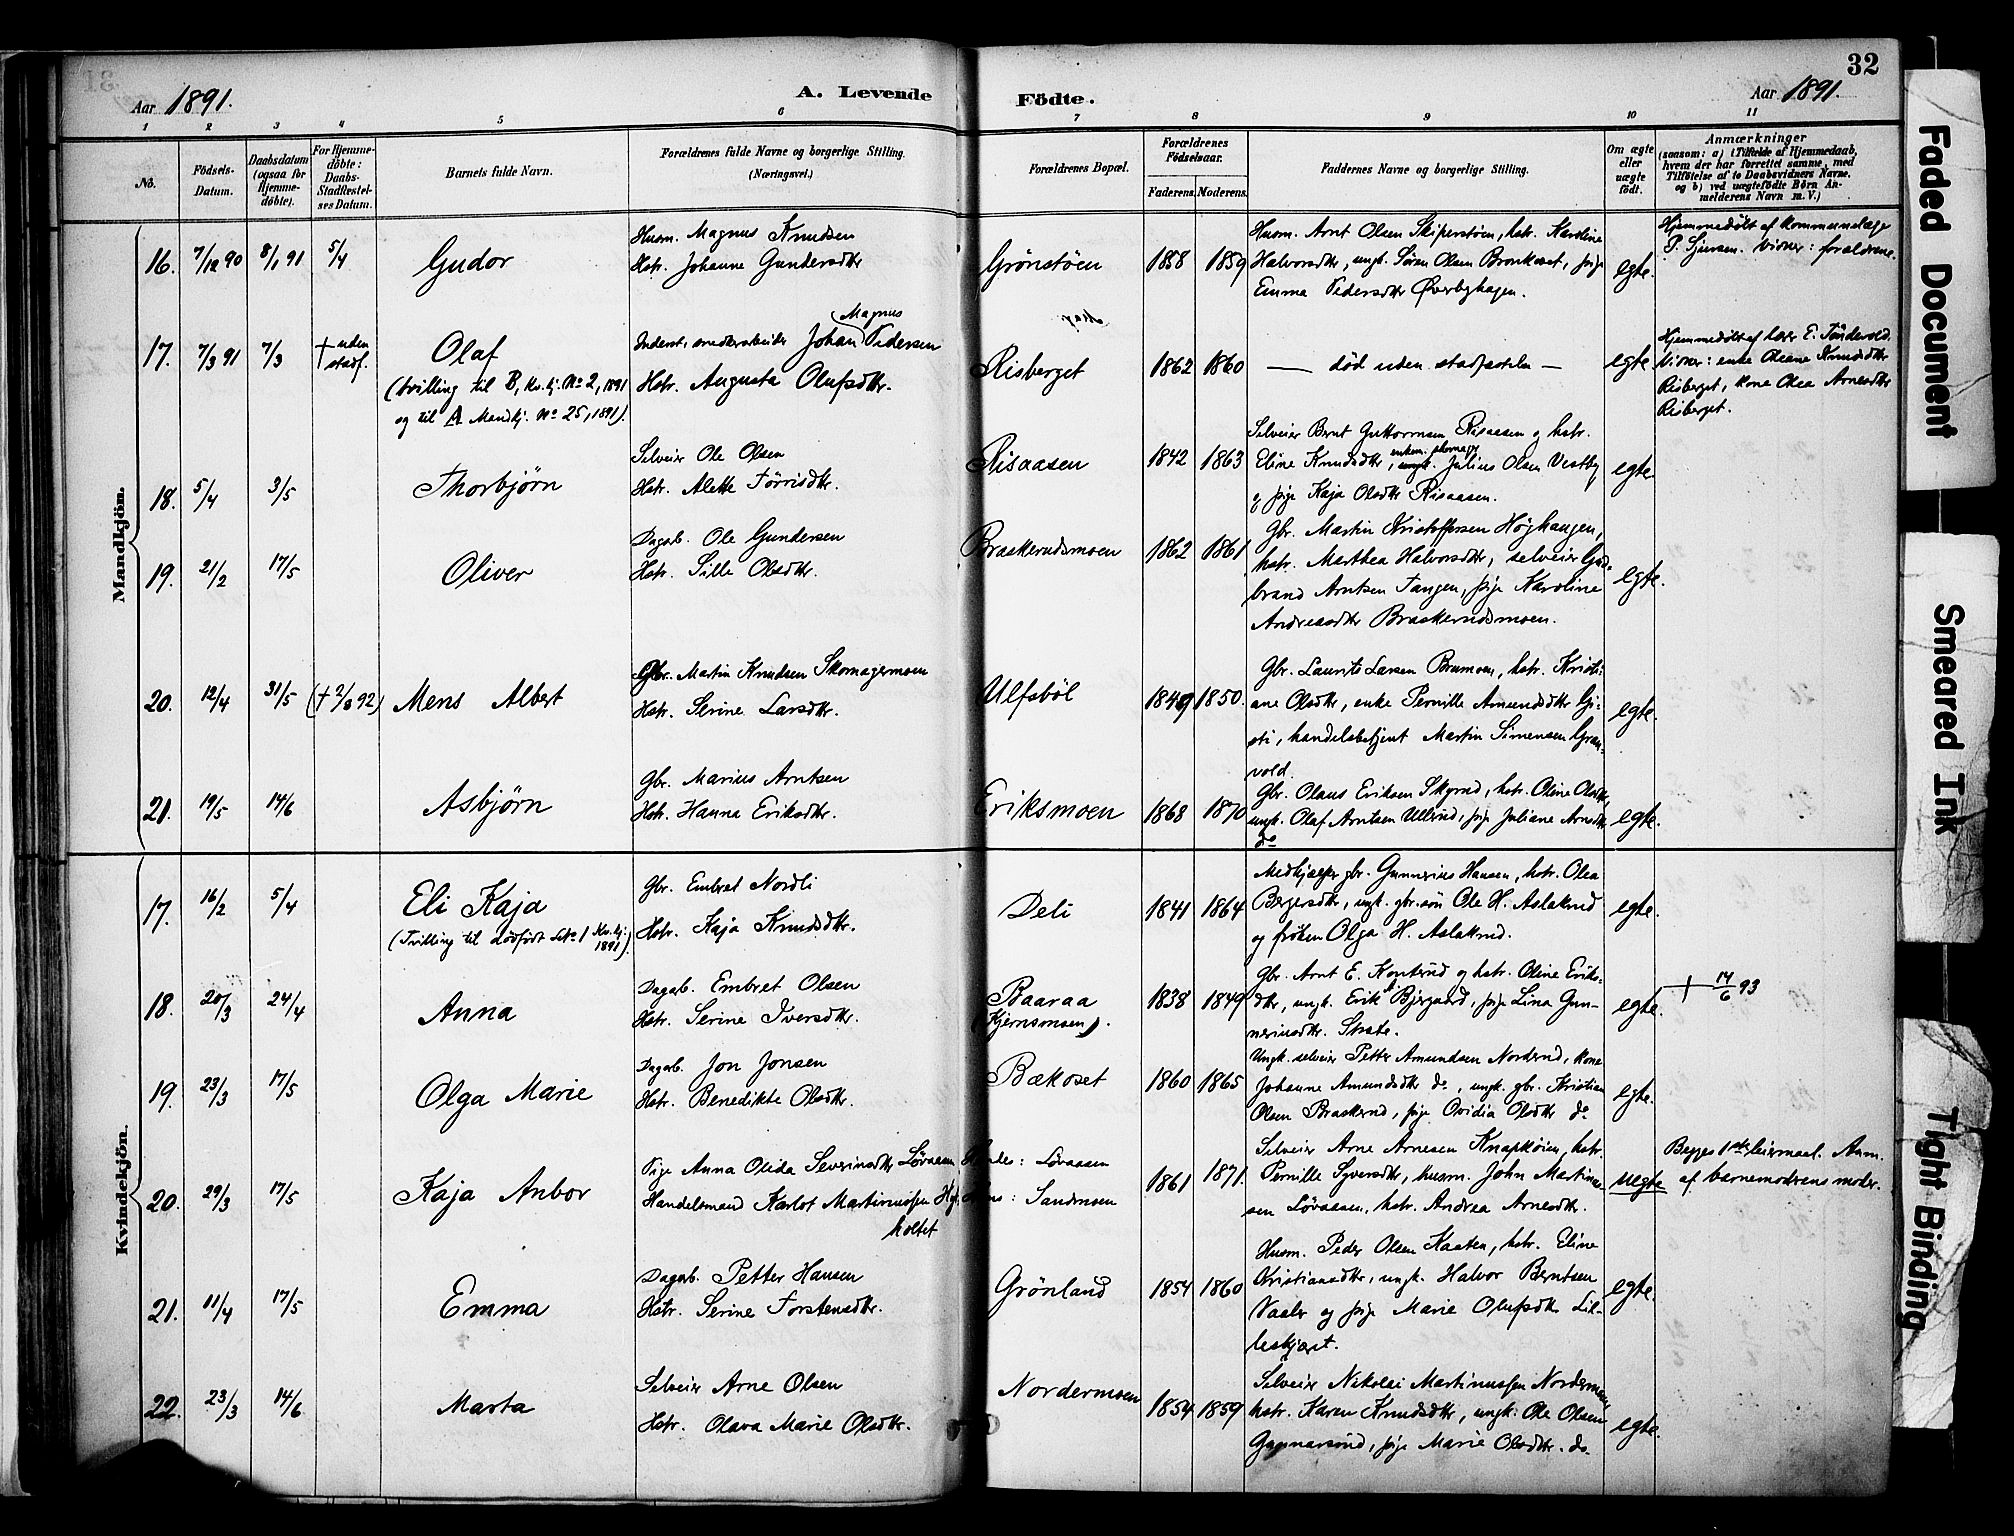 32
Aar 1891. A. Levende Födte. Aar 1891.
1 2 3 4 5 6 7 8 9 10 11
No.
Födsels-Datum.
Daabsdatum (ogsaa for Hjemme-döbte).
For Hjemme-döbte: Daabs-Stadfæstel-ses Datum.
Barnets fulde Navn.
Forældrenes fulde Navne og borgerlige Stilling. (Næringsvei.)
Forældrenes Bopæl.
Forældrenes Födselsaar. Faderens. Moderens.
Faddernes Navne og borgerlige Stilling.
Om ægte eller uægte födt.
Anmærkninger
(saasom: a) i Tilfælde af Hjemmedaab, hvem der har forrettet samme, med Tilföielse af to Daabsvidners Navne. og b) ved uægtefödte Börn An-melderens Navn m. V.)
Mandkjön.
16. 7/12 90 8/1 91 5/4 Gudor
Husm. Magnus Knudsen
Hstr. Johanne Gundersdtr
Grönstöen 1858 1859
Husm. Arnt Olsen Skiperstöen, hstr. Karoline
Halvorsdtr, ungk. Sören Olsen Bronkeset, pige
Emma Pedersdtr Överbyhagen.
egte.
Hjemmedöbt af kommunelæge
Vidner: forældrene.
17. 7/3 91 7/3 † uden stadf. Olaf
(tvilling til B, Kv.kj. No 2, 1891
og til A Mandkj. No 25, 1891).
Magnus
Inderst, smedearbeider Johan Pedersen
Hstr. Augusta Olufsdtr.
Risberget 1862 1860
— död uden stadfæstelse —
egte
Hjemmedöbt af lærer E. Tönderold.
Vidner: enke Oleane Knudsdtr
Risberget, kone Olea Arnesdtr
Risberget.
18. 5/4 3/5 Thorbjörn
Selveier Ole Olsen
Hstr. Alette Törrisdtr.
Risaasen 1842 1863
Selveier Bernt Guttormsen Risaasen og hstr.
Eline Knudsdtr, ungk. Julius Olsen Vestby
og pige Kaja Olsdtr Risaasen.
egte.
19. 21/2 17/5 Oliver
Dagarb. Ole Gundersen
Hstr. Sille Olsdtr.
Braskerudsmoen 1862 1861
Gbr. Martin Kristoffersen Höghaugen,
hstr. Marthea Halvorsdtr, selveier Gud-
brand Arntsen Tangen, pige Karoline
Andreasdtr Braskerudsmoen.
egte.
20. 12/4 31/5 († 2/8 92) Mens Albert
Gbr. Martin Knudsen Skomagermoen
Hstr. Serine Larsdtr.
Ulfsböl 1849 1850.
Gbr. Laurits Larsen Brumoen, hstr. Kristi-
ane Olsdtr, enke Pernille Amundsdtr Gji-
sti, handelsbetjent Martin Simensen Gran-
vold.
egte.
21. 19/5 14/6 Asbjörn
Gbr. Marius Arntsen
Hstr. Hanna Eriksdtr.
Eriksmoen 1868 1870
Gbr. Olaus Eriksen Skyrud, hstr. Oline Olsdtr,
ungk. Olaf Arntsen Ullerud, pige Juliane Arnesdtr
do
egte.
Kvindekjön.
17. 16/2 5/4 Eli Kaja
(Tvilling til dödfödt No 1 Kv.kj. 1891)
Gbr. Embret Nordli
Hstr. Kaja Knudsdtr.
Deli 1841 1864
Medhjælper gbr. Gunnerius Hansen, hstr. Olea
Bergersdtr, ungk. gbr.sön Ole H. Aslakrud
og fröken Olga H. Aslakrud.
egte.
18. 20/3 24/4 Anna
Dagarb. Embret Olsen
Hstr. Serine Iversdtr.
Baaraa
(Kjernsmoen).
1838 1849
Gbr. Arnt E. Konterud og hstr. Oline Eriks-
dtr, ungk. Erik Bjergaard, pige Lina Gun-
neriusdtr. Strate.
egte.
† 14/6 93
19. 23/3 17/5 Olga Marie
Dagarb. Jon Jonsen
Hstr. Benedikte Olsdtr.
Bækoset 1860 1865
Ungk. selveier Petter Amundsen Norderud, kone
Johanne Amundsdtr do, ungk. gbr. Kristian
Olsen Braskerud, pige Ovidia Olsdtr do
egte.
20. 29/3 17/5 Kaja Anbor
Pige Anna Olida Severinsdtr Lövaasen
Handelsmand Karlot Martinussen
holtet
Hendes: Lövaasen
Hans: Sandmoen
1861 1871.
Selveier Arne Arnesen Knapköien, hstr.
Pernille Syversdtr, husm. John Martinus-
sen Lövaasen, hstr. Andrea Arnesdtr.
uegte
Begges 1ste leiermaal. Anm.
af barnemoderens moder.
21. 11/4 17/5 Emma
Dagarb. Petter Hansen
Hstr. Serine Torstensdtr.
Grönland 1854 1860
Husm. Peder Olsen Kaaten, hstr. Eline
Kristiansdtr, ungk. Halvor Berntsen
Vaaler og pige Marie Olufsdtr Lil-
leskjæret.
egte.
22. 23/3 14/6 Marta
Selveier Arne Olsen
Hstr. Olava Marie Olsdtr.
Nordermoen 1854 1859
Selveier Nikolai Martinussen Nordermoen
hstr. Karen Knudsdtr, ungk: Ole Olsen
Gammarsrud, pige Marie Olsdtr. do.
egte.
Faded Document
Smeared Ink
Tight Binding